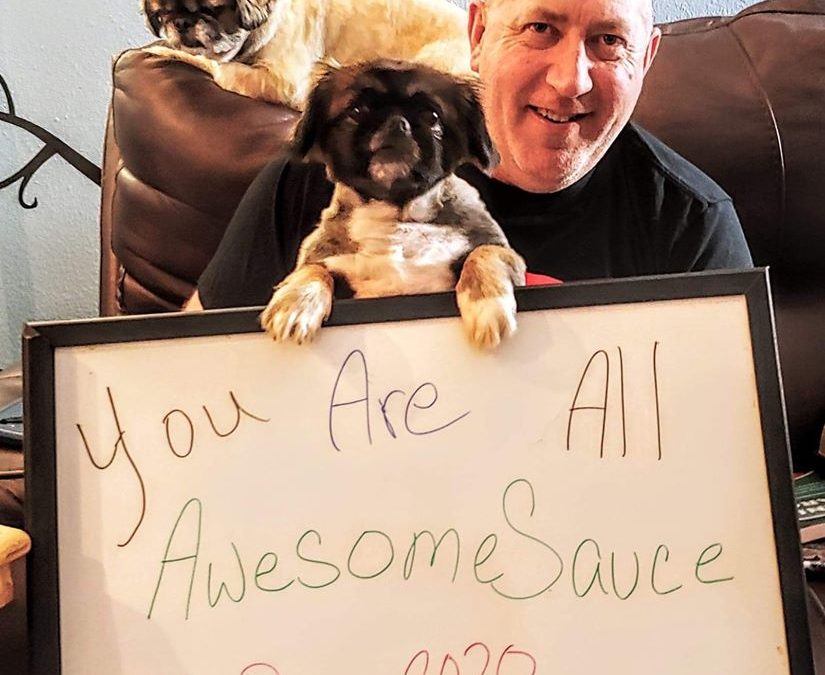 You Are All
AwesomeSauce
2020